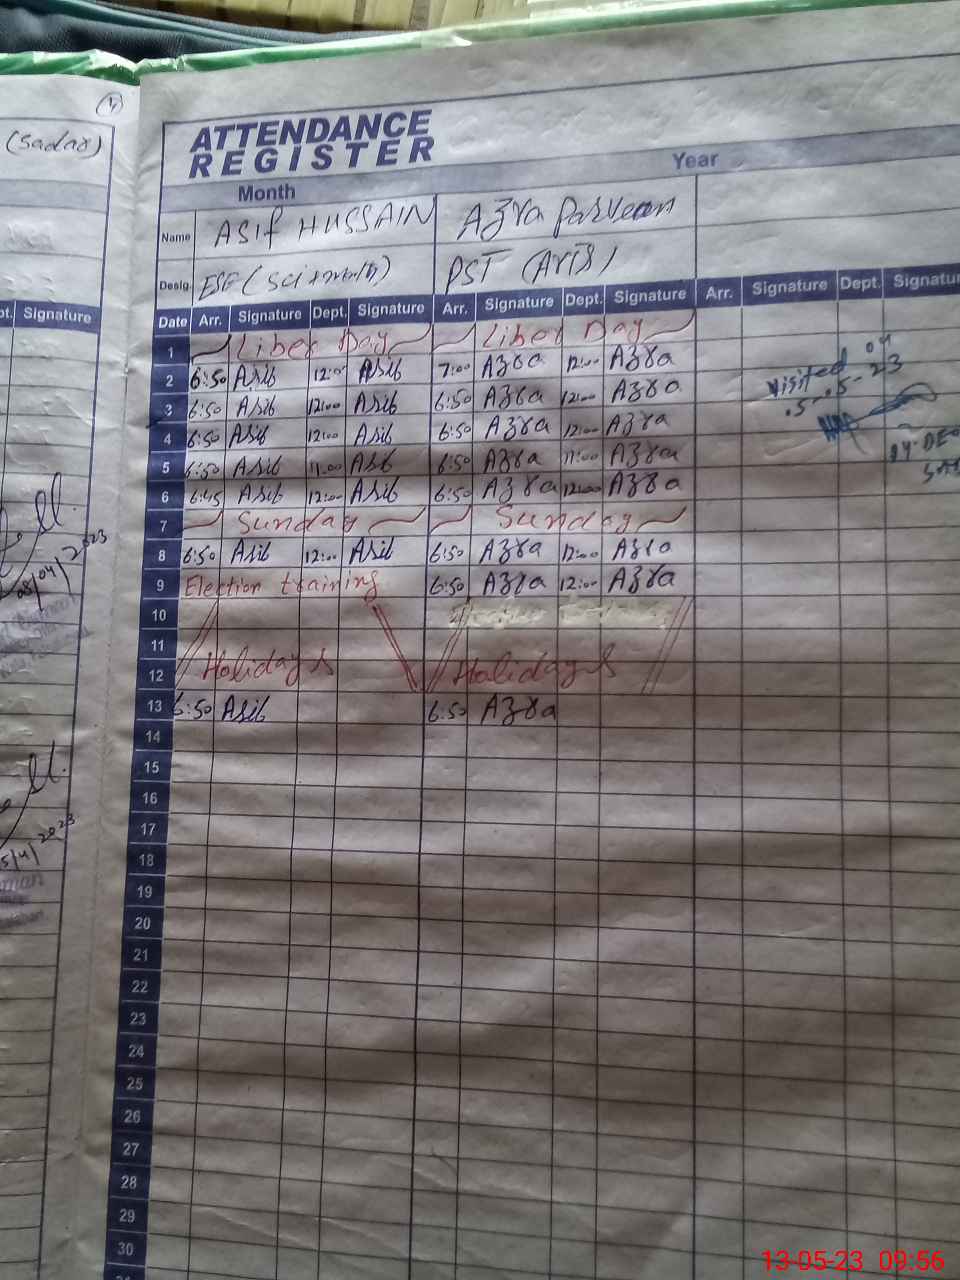 (Sadar)
ATTENDANCE
REGISTER
Month Year
Name ASIF HUSSAIN Azra Parveen
Desig. ESE (Sci-math) PST (ARTS)
Signature
Date Arr. Signature Dept. Signature Arr. Signature Dept. Signature Arr. Signature Dept. Signatur
1 Liber Day Liber Day
2 6:50 Asib 12:00 Asib 7:00 Azra 12:00 Azra
3 6:50 Asib 12:00 Asib 6:50 Azra 12:00 Azra
4 6:50 Asib 12:00 Asib 6:50 Azra 12:00 Azra
5 6:50 Asib 11:00 Asib 6:50 Azra 11:00 Azra
6 6:45 Asib 12:00 Asib 6:50 Azra 12:00 Azra
7 Sunday Sunday
8 6:50 Asib 12:00 Asib 6:50 Azra 12:00 Azra
9 Election training 6:50 Azra 12:00 Azra
10
11
12 Holidays Holidays
13 6:50 Asib 6:50 Azra
14
15
16
17
18
19
20
21
22
23
24
25
26
27
28
29
30
Visited
08/04/2023
13-05-23 09:56